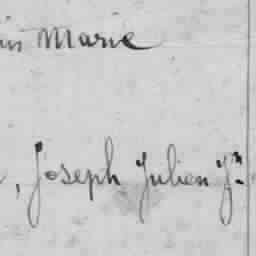 Marie
, Joseph Julien Y.